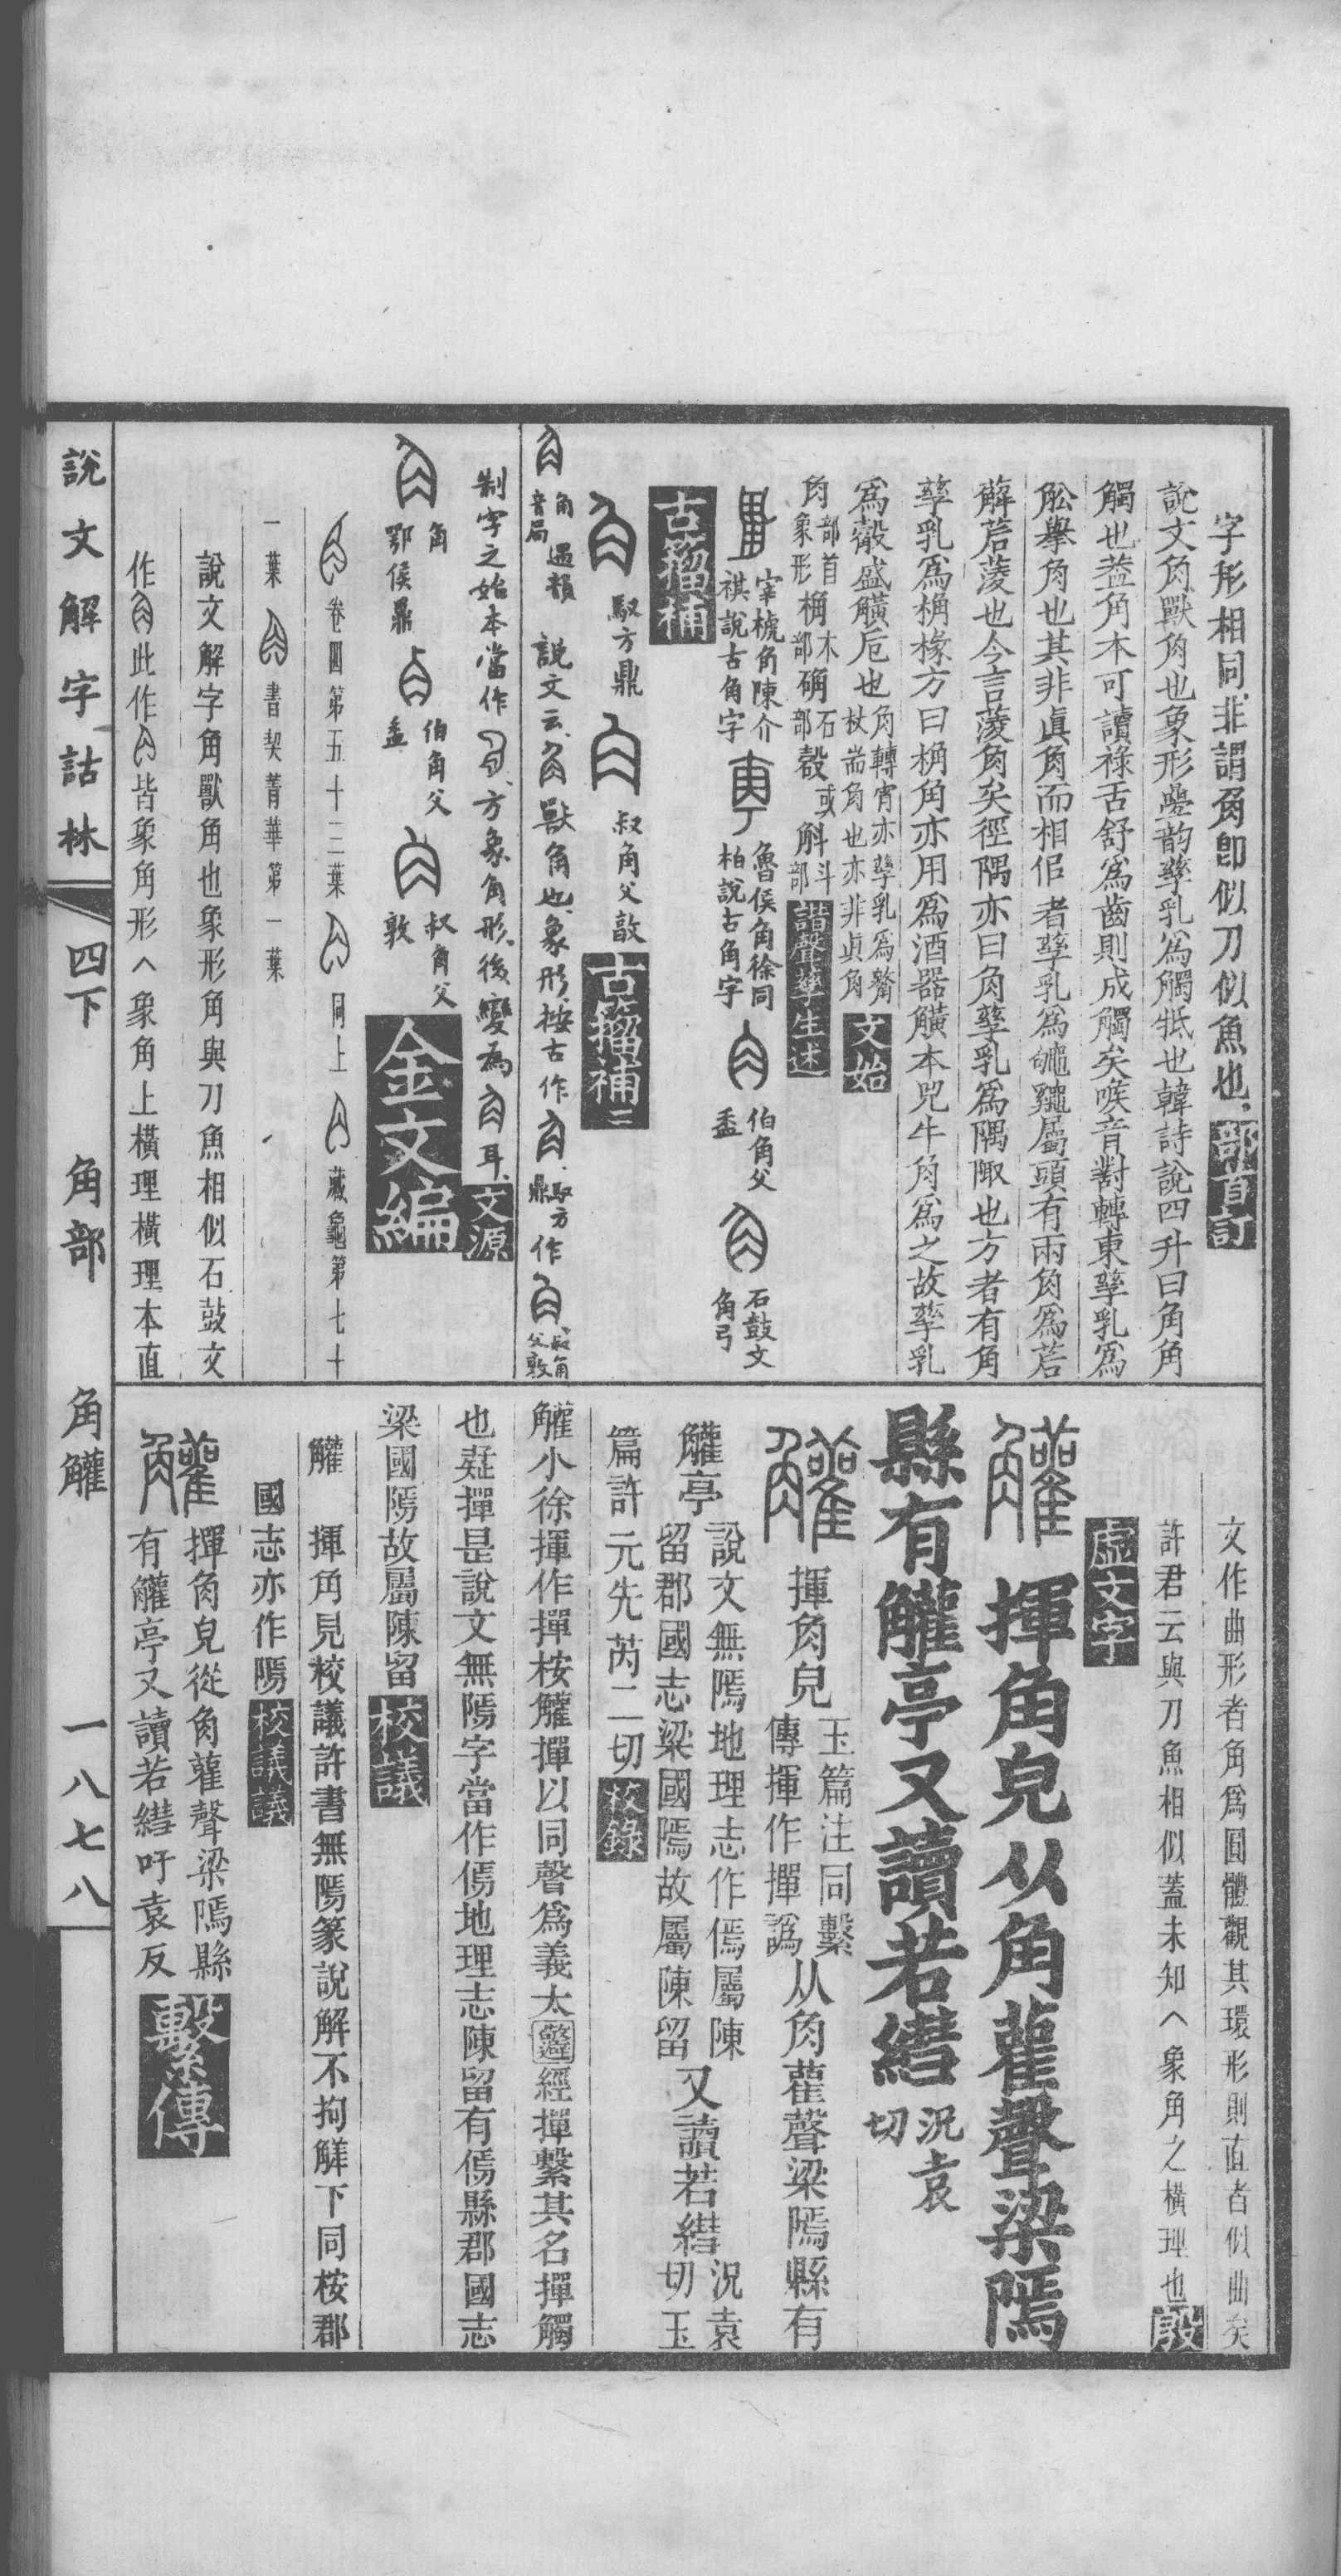 字形相同非謂角卽似刀似魚也部首訂
說文角獸角也象形㢜韵孳乳爲觸牴也韓詩說四升曰角角
觸也葢角本可讀祿舌舒爲齒則成觸矣喉音對轉東孳乳爲
舩舉角也其非眞角而相佀者孳乳爲䰎䵷屬頭有兩角爲䓈
薢䓈蔆也今言蔆角矣徑隅亦曰角孳乳爲隅陬也方者有角
孳乳爲桷椽方曰桷角亦用爲酒器觵本兕牛角爲之故孳乳
爲觳盛觵卮也角轉宵亦孳乳爲觜杖耑角也亦非眞角文始
角部首象形桷木部确石部㱿或斛斗部諧聲孳生述
宰椃角陳介祺說古角字 魯侯角徐同柏說古角字 伯角父盉 石鼓文角弓
古籀補
馭方鼎 叔角父敦 古籀補二
角 說文云角獸角也象形按古作 馭方鼎作 叔角父敦
制字之始本當作 方象角形後變爲 耳文源
角 鄂侯鼎 伯角父盉 叔角父敦 金文編
卷四第五十三葉 同上 藏龜第七十
一葉 書契菁華第一葉
說文解字角獸角也象形角與刀魚相似石鼓文
作 此作 皆象角形 象角上橫理橫理本直
文作曲形者角爲圓體觀其環形則直者似曲矣
許君云與刀魚相似蓋未知 象角之橫理也殷
虛文字
觿 揮角皃从角雚聲梁隖
縣有觿亭又讀若繕況袁切
揮角皃玉篇注同繫傳揮作撣譌从角雚聲梁隖縣有
亭說文無隖地理志作傿屬陳留郡國志梁國隖故屬陳留又讀若繕況袁切玉
篇許元先芮二切校錄
小徐揮作撣桉 撣以同聲爲義太 經撣繫其名撣觸
也疑撣是說文無隖字當作傿地理志陳留有傿縣郡國志
梁國隖故屬陳留校議
揮角見校議許書無隖篆說解不拘觲下同桉郡
國志亦作隖校議議
撣角皃從角雚聲梁隖縣
有 亭又讀若繕吁袁反繫傳
說文解字詁林 四下 角部 角 一八七八